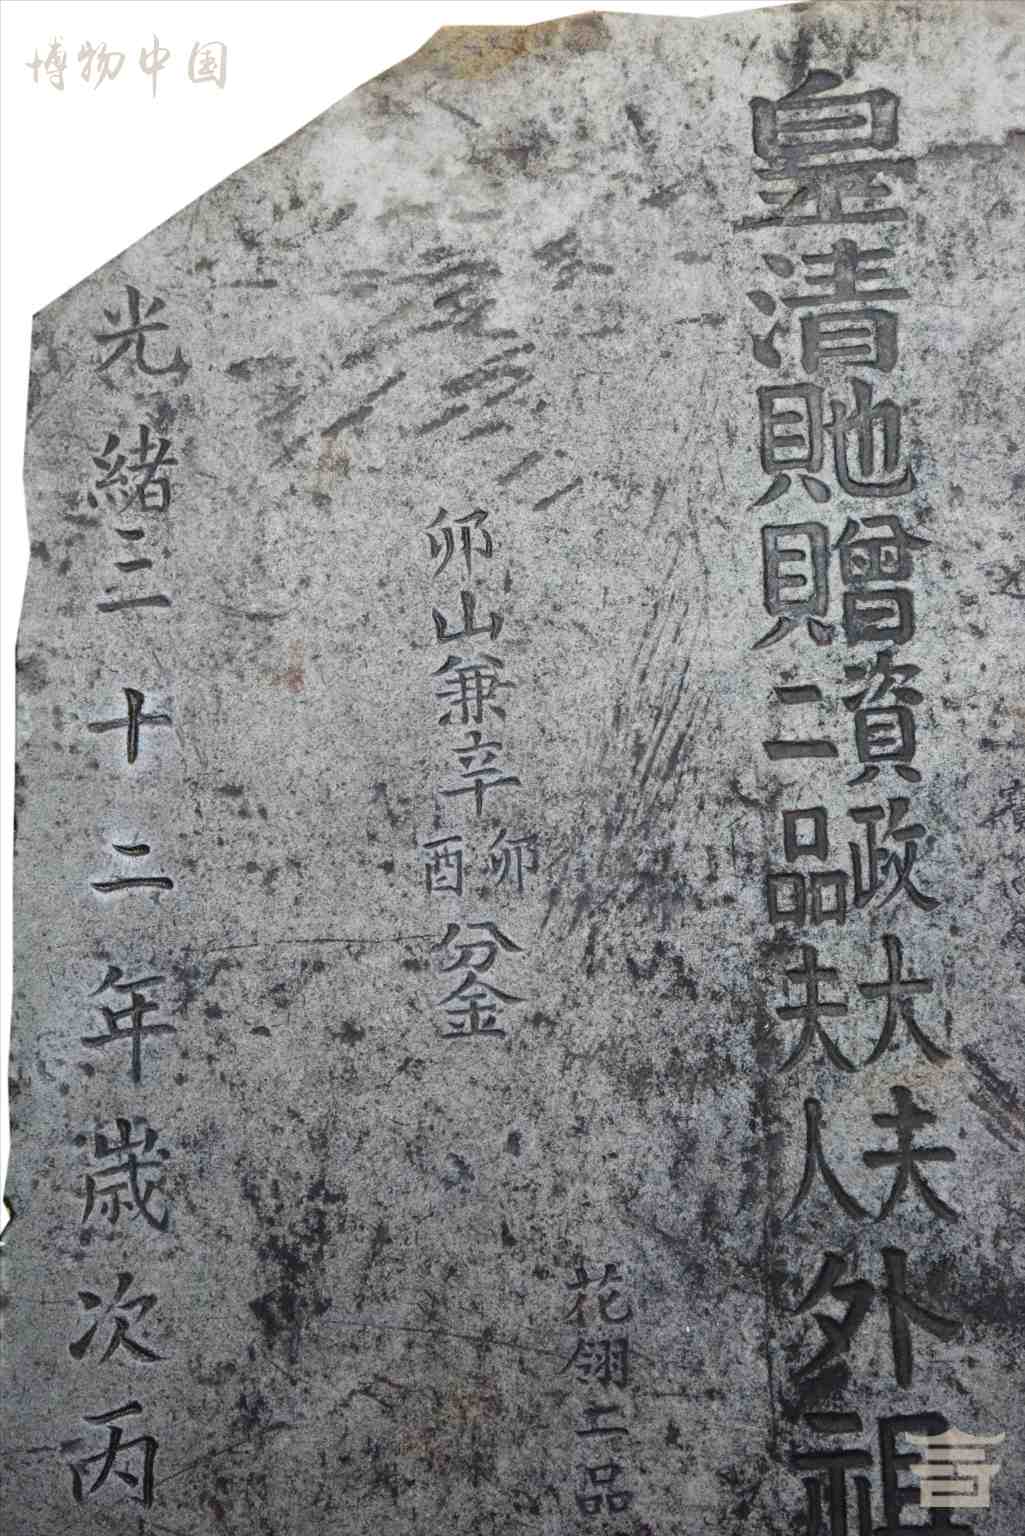 皇清貤贈資政大夫外祖
貤贈二品夫人
花翎二品
卯山兼辛
卯酉
分金
光緒三十二年歲次丙
博物中国